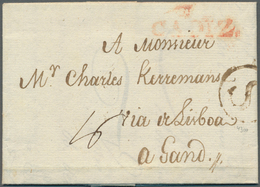 CADIZ
A Monsieur
Mr Charles Kerremans
via de Lisboa
16
a Gand.